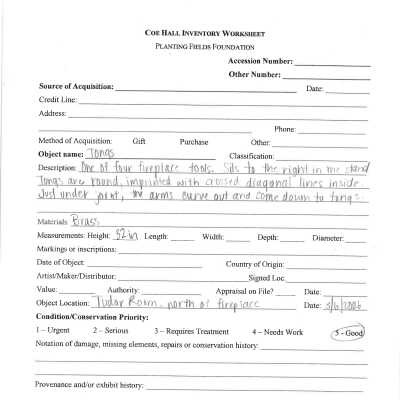 COE HALL INVENTORY WORKSHEET
PLANTING FIELDS FOUNDATION
Accession Number:
Other Number:
Source of Acquisition: Date:
Credit Line:
Address:
Phone:
Method of Acquisition: Gift Purchase Other:
Object name: Tongs Classification:
Description: One of four fireplace tools. Sits to the right in the stand
Tongs are round, imprinted with crossed diagonal lines inside
Just under joint, the arms curve out and come down to tongs.
Materials: Brass
Measurements: Height: 32in Length: Width: Depth: Diameter:
Markings or inscriptions:
Date of Object: Country of Origin:
Artist/Maker/Distributor: Signed Loc.
Value: Authority: Appraisal on File? Date:
Object Location: Tudor Room, north of fireplace Date: 3/6/2006
Condition/Conservation Priority:
1 – Urgent 2 – Serious 3 – Requires Treatment 4 – Needs Work 5 - Good
Notation of damage, missing elements, repairs or conservation history:
Provenance and/or exhibit history: